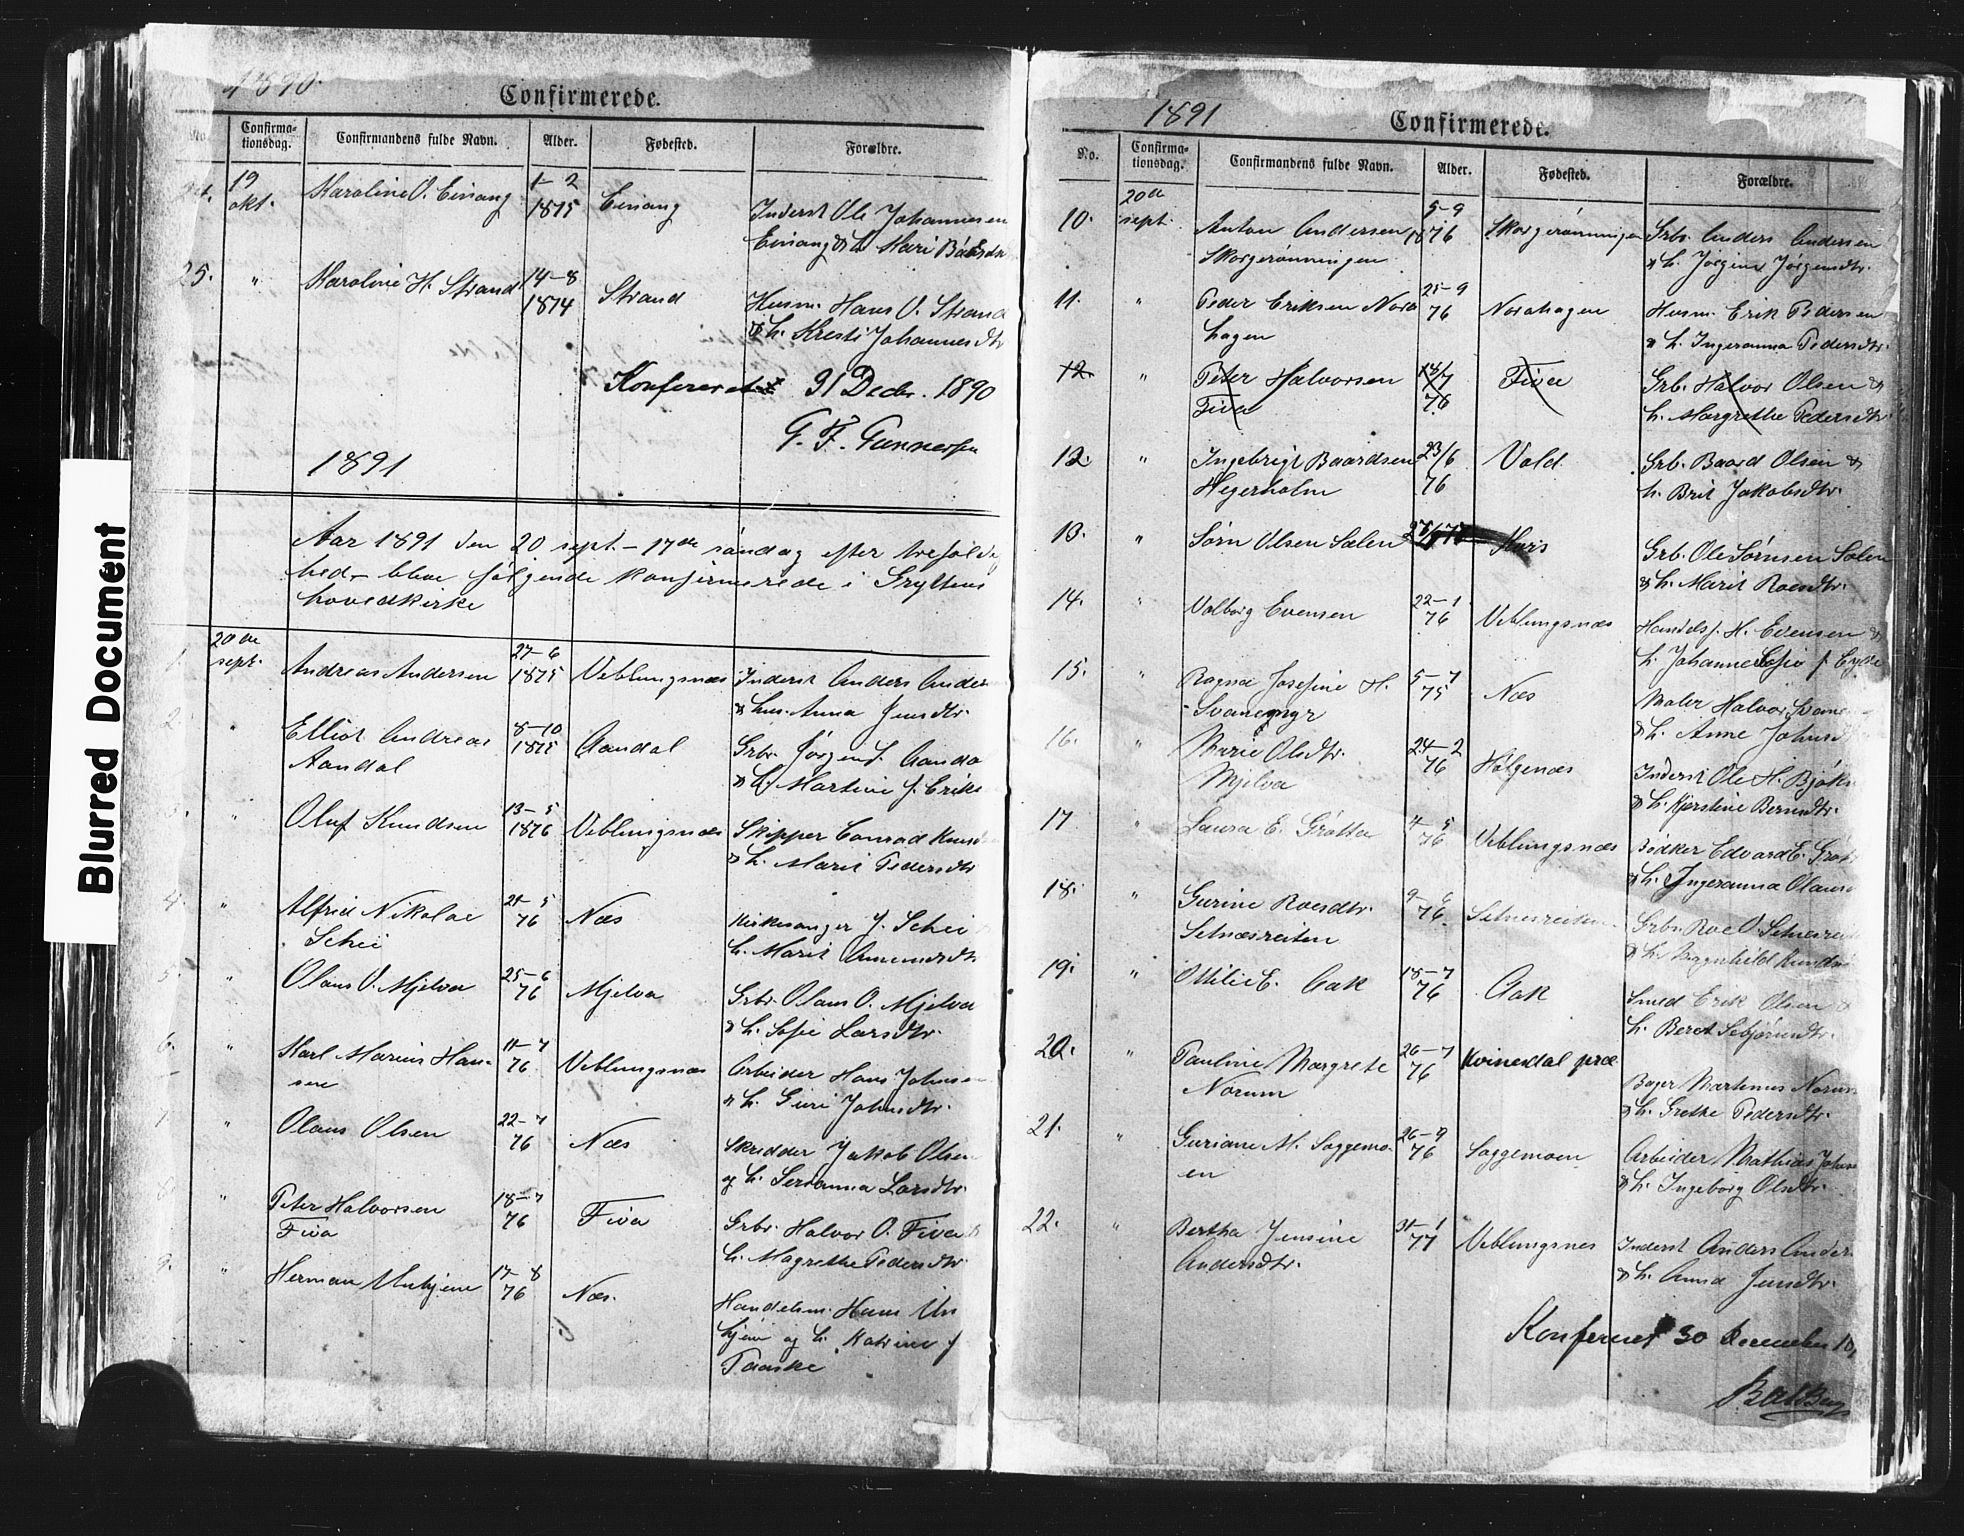 Blurred Document
1890
Confirmerede.
No.
Confirma-
tionsdag.
Confirmandens fulde Navn.
Alder.
Fødested.
Forældre.
19
okt.
Karoline O. Einang
1-2
1875
Einang
Inderst Ole Johannesen
Einang & h. Mari
25.
"
Karoline H. Strand
14-8
1874
Strand
Husm. Hans O. Strand
& h. Kresti Johannesdtr
Konfereret 31 Decbr. 1890
G. F. Gunnersen
1891
Aar 1891 den 20 sept. - 17de søndag efter trefoldig
hed - blev følgende konfirmerede i Gryttens
hovedkirke
1.
20de
sept.
Andreas Andersen
27-6
1875
Veblungsnæs
Inderst Anders Ander
& hus. Anna Jensdtr.
2.
"
Elliot Andreas
Aandal
8-10
1875
Aandal
Grbr. Jørgen J. Aanda
& h. Martine f. Eriks
3.
"
Oluf Knudsen
13-5
1876
Veblungsnæs
Skipper Conrad Knud
& h. Marit Pedersdtr
4.
"
Alfred Nikolai
Schei
21-5
76
Næs
Kirkesanger J. Schei
h. Marit Amundsdtr
5.
"
Olaus O. Mjelva
25-6
76
Mjelva
Grbr. Olaus O. Mjelva
& h. Sofie Larsdtr.
6.
"
Karl Marius Han-
sen
11-7
76
Veblungsnæs
Arbeider Hans Johnsen
& h. Guri Johnsdtr.
7
"
Olaus Olsen
22-7
76
Næs
Skrædder Jakob Olsen
og h. Serianna Larsdtr.
8.
"
Peter Halvorsen
Fiva
18-7
76
Fiva
Grbr. Halvor O. Fiva &
h. Magrethe Pedersdtr.
9.
"
Herman Unhjem
17-8
76
Næs.
Handelsm. Hans Un
hjem og h. Katrine f
Taaske
1891
Confirmerede.
No.
Confirma-
tionsdag.
Confirmandens fulde Navn.
Alder.
Fødested.
Forældre.
10.
20de
sept.
Anton Andersen
Skorgerønningen
5-9
1876
Skorgerønningen
Grbr. Anders Andersen
& h. Jørgine Jørgensdtr.
11.
"
Peder Eriksen Nora
hagen
21-9
76
Norahagen
Husm. Erik Pedersen
& h. Ingeranna Pedersdtr.
12.
"
Peter Halvorsen
Fiva
18/7
76
Fiva
Grb. Halvor Olsen &
h. Margrethe Pedersdtr.
12.
"
Ingebrigt Baardsen
Hegerholm
23/6
76
Vold
Grb. Baard Olsen &
h. Brit Jakobsdtr.
13.
"
Sørn Olsen Sælen
Grb. Ole Sørnsen Sælen
& h. Marit Roesdtr.
14.
"
Valborg Evensen
22-1
76
Veblungsnæs
Handelsf. H. Evensen &
h. Johanne Sofie f.
15.
"
Ragna Josefine H.
Svanegngr
5-7
75
Næs
Maler Halvor Svane
& h. Anne Johns
16.
"
Marie Olsdtr.
Mjelva
24-2
76
Holgenæs
Inderst Ole H. Bjøk
& h. Kjerstine Berntdtr.
17
"
Laura E. Grøtta
4-5
76
Veblungsnæs
Bødker Edvard E. Grøt
& h. Ingeranna Olaus
18.
"
Gurine Roesdtr.
Setnæsreiten
9-6
76.
Setnesreiten
Grbr. Roe O. Setnesreit
& h. Ragnhild Knuds
19.
"
Ottilie E. Aak
18-7
76
Aak
Smed Erik Olsen &
h. Beret Sebjørnsdtr.
20.
"
Pauline Margrete
Norum
26-7
76
Kvinesdal præ
Bager Martinus Norum
& h. Grethe Pedersdtr.
21.
"
Guriane M. Soggemo-
en
26-9
76
Soggemoen
Arbeider Mathias Johns
& h. Ingeborg Olsdtr.
22.
"
Bertha Jensine
Andersdtr.
31-1
77
Veblungsnes
Inderst Anders Ander
& h. Anna Jensdtr.
Konfereret 30 December